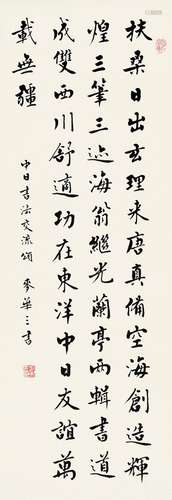 扶桑日出玄理来唐真備空海創造輝
煌三筆三迹海翁繼光蘭亭西輯書道
成雙西川舒適功在東洋中日友誼萬
載無疆
中日书法交流頌 麥華三书